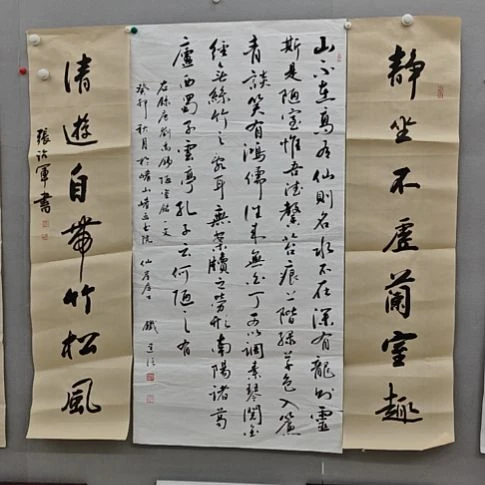 靜坐不虛蘭室趣
山不在高有仙則名水不在深有龍則靈
斯是陋室惟吾德馨苔痕上階綠草色入簾
青談笑有鴻儒往來無白丁可以調素琴閱金
經無絲竹之亂耳無案牘之勞形南陽諸葛
廬西蜀子雲亭孔子云何陋之有
右錄唐劉禹錫陋室銘一文
癸卯秋月於嶗山
清遊自帶竹松風
張 軍書